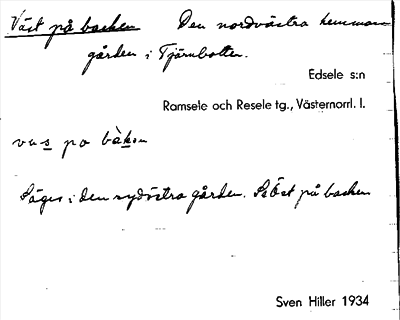 Väst på backen Den nordvästra hemmans-
gården i Tjärnbotten.
Edsele s:n
Ramsele och Resele tg., Västernorrl. l.
vus po bàkɘn
Säges i den sydöstra gården. Se Öst på backen
Sven Hiller 1934